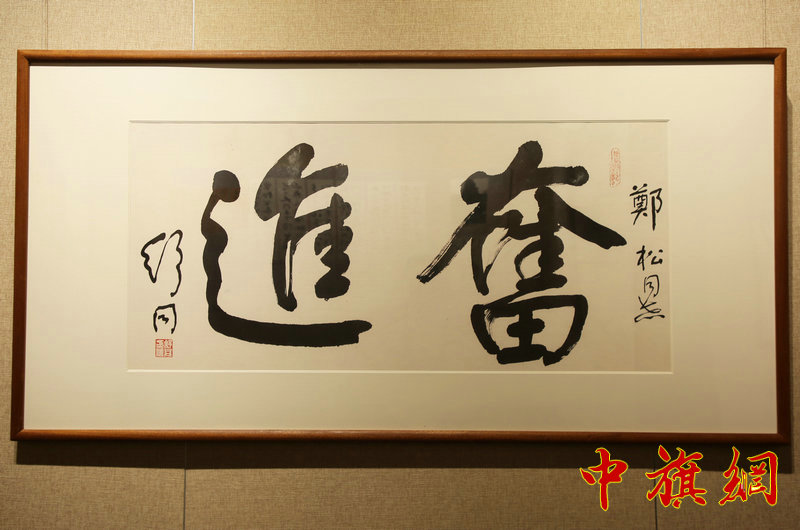 鄭松同志
奮進
舒同
中旗網